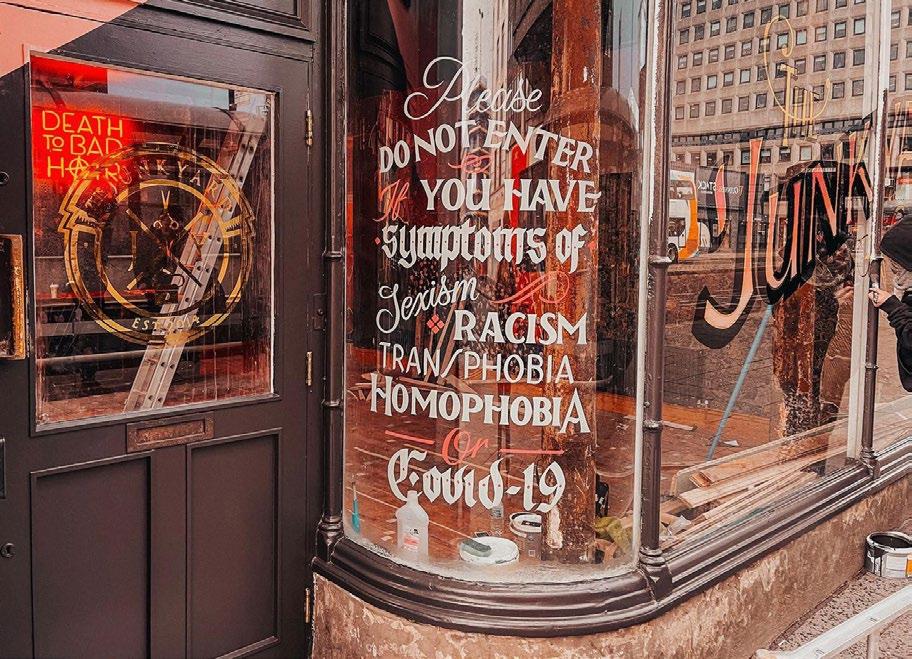 DEATH
TO BAD
HAIR
JUNKYARD
ESTD
Please
DO NOT ENTER
If YOU HAVE
symptoms of
Sexism
RACISM
TRANSPHOBIA
HOMOPHOBIA
Or
Covid-19
JUNK